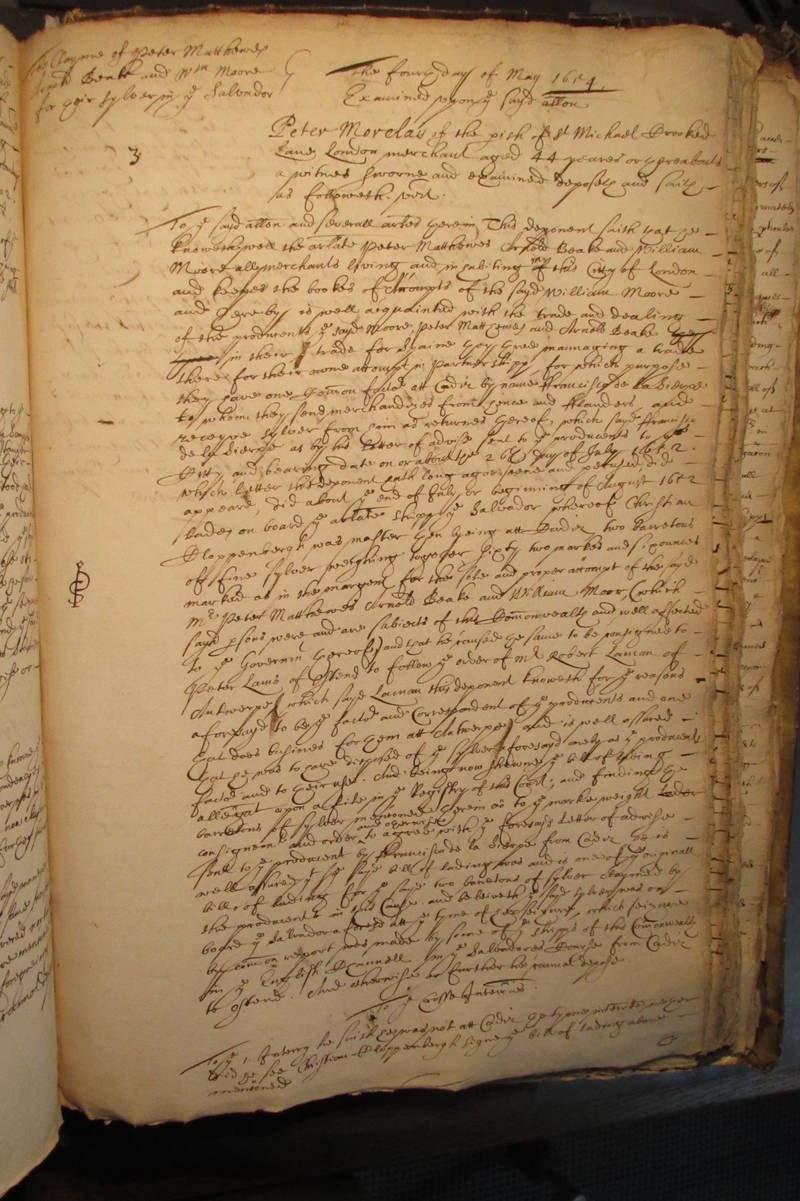 The Clayme of Peter Matthewes
Arnold Beake and Wm Moore
for their sylver in ye Salvador
The fourth day of May 1654.
Examined upon ye sayd allon
3
Peter Morclar of the pish of St Michael Crooked
Lane London merchant aged 44 yeares or thereabouts
a witnes sworne and examined deposeth and saith
as followeth. vizt.
To ye sayd allon and severall artes therein This deponent saith that he
knoweth well the arlate Peter Matthewes Arnold Beake and William
Moore all merchants living and inhabiting in this City of London
and keepes the bookes of Accompts of the sayd William Moore
and thereby is well acquainted with the trade and dealing
of the producents ye sayd Moore Peter Matthewes and Arnold Beake
in their trade for Spaine they three mannaging a trade
there for their owne accompt in Partnershipp, for which purpose
they have one Comon factor att Cadiz by name Francisco de la Sierpe
to whom they send merchandizes from hence and Flanders, and
receyve sylver from him as returnes thereof, which sayd Francisco
de la Sierpe as by his letter of advise sent to ye producents to this
Citty and bearing date on or about the 26th day of July 1652.
which letter this deponent hath long agoe seene and perused, did
appeare, did about ye end of July or beginning of August 1652
lade on board ye arlate shipp ye Salvador whereof Christian
Cloppenbergh was master then being att Cadiz two barretons
of fine sylver weighing together sixty two markes and six ounces
marked as in the margent for the sole and proper accompt of the sayd
Mr Peter Matthewes Arnold Beake and William Moor, (which
sayd psons were and are subiects of this Comonwealth and well affected
to ye Governmt thereof) and that he caused the same to be consigned to
Peter Lams of Ostend to follow ye order of Mr Robert Laman of
Antwerpe, which sayd Laman this deponent knoweth for ye reasons
aforesayd to be ye factor and Correspondent of ye producents and one
that does busines for them att Antwerpe and is well assured
that he was to have disposed of ye sylver aforesayd onely as ye producents
factor and to their use. And being now shewne ye bill of lading
allegat upon a file in ye Registry of this Court, and finding the
barretons of sylver mencioned therein as to ye marke, weight
consignemt and order and otherwise to agree with ye foresayd letter of advise
sent to ye producent by Francisco de la Sierpe from Cadiz he is
well assured yt ye sayd bill of lading was and is one of ye originall
bills of lading for ye sayd two barretons of sylver claymed by
the producents in this Cause. and beleiveth ye sayd sylver was on
board ye Salvador aforesd att ye tyme of her seizure, which seizure
by comon report was made by some of ye shipps of this Comonwealth
in ye English Channell in ye Salvadores Course from Cadiz
to Ostend. And otherwise or further he cannot depose
To ye Crosse Interries.
To ye 1. Interry he saith he was not att Cadiz att tyme interrte, neyther
did he see Christian Cloppenbergh signe ye bill of lading above
mentioned